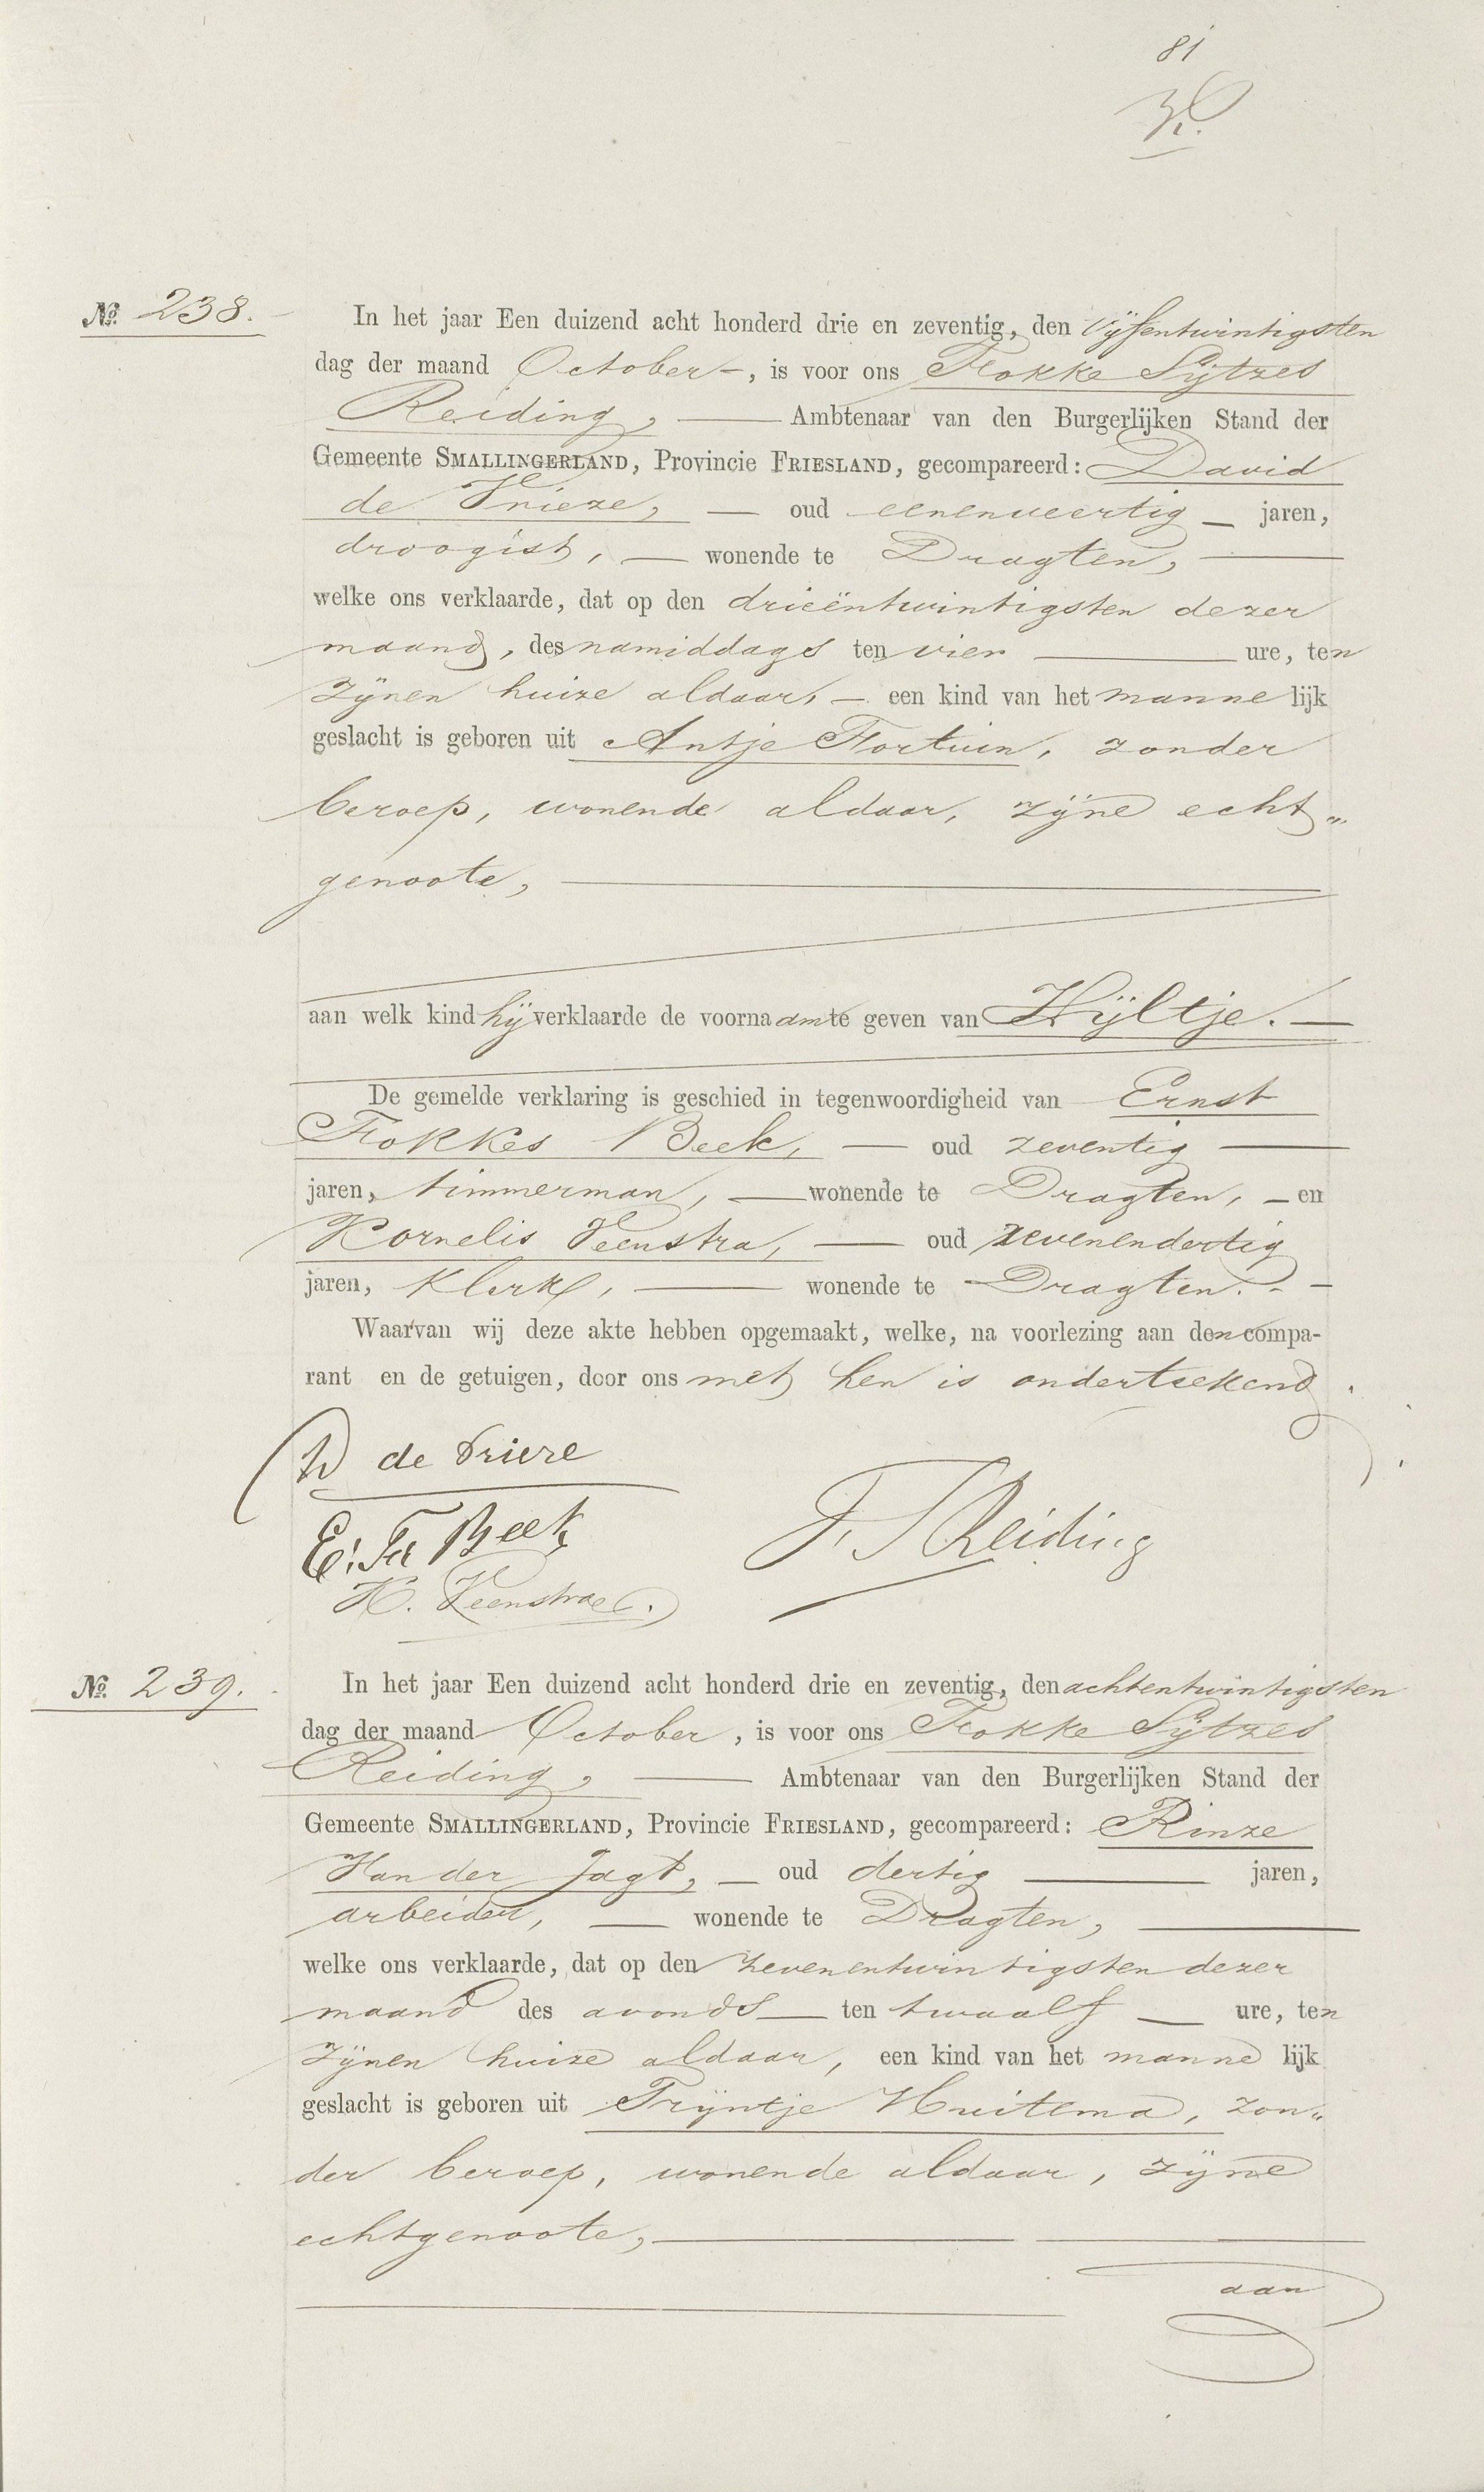 81
No. 238.
In het jaar Een duizend acht honderd drie en zeventig, den vijfentwintigsten
dag der maand October, is voor ons Fokke Sijtzes
Reiding, Ambtenaar van den Burgerlijken Stand der
Gemeente SMALLINGERLAND, Provincie FRIESLAND, gecompareerd: David
de Vrieze, oud eenenveertig jaren,
droogist, wonende te Dragten,
welke ons verklaarde, dat op den drieëntwintigsten dezer
maand, des namiddags ten vier ure, ten
zijnen huize aldaar, een kind van het mannelijk
geslacht is geboren uit Antje Fortuin, zonder
beroep, wonende aldaar, zijne echt„
genoote,
aan welk kind hij verklaarde de voornaam te geven van Wijltje.
De gemelde verklaring is geschied in tegenwoordigheid van Ernst
Fokkes Beek, oud zeventig
jaren, timmerman, wonende te Dragten, en
Kornelis Veenstra, oud zevenendertig
jaren, klerk, wonende te Dragten.
Waarvan wij deze akte hebben opgemaakt, welke, na voorlezing aan den compa-
rant en de getuigen, door ons met hen is onderteekend.
D de Vrieze
E. Fk Beek
F. S Reiding
K. Veenstra.
No. 239.
In het jaar Een duizend acht honderd drie en zeventig, den achtentwintigsten
dag der maand October, is voor ons Fokke Sijtzes
Reiding, Ambtenaar van den Burgerlijken Stand der
Gemeente SMALLINGERLAND, Provincie FRIESLAND, gecompareerd: Rinze
Van der Jagt, oud dertig jaren,
arbeider, wonende te Dragten,
welke ons verklaarde, dat op den zevenentwintigsten dezer
maand des avonds ten twaalf ure, ten
zijnen huize aldaar, een kind van het mannelijk
geslacht is geboren uit Trijntje Huitema, zon„
der beroep, wonende aldaar, zijne
echtgenoote,
aan